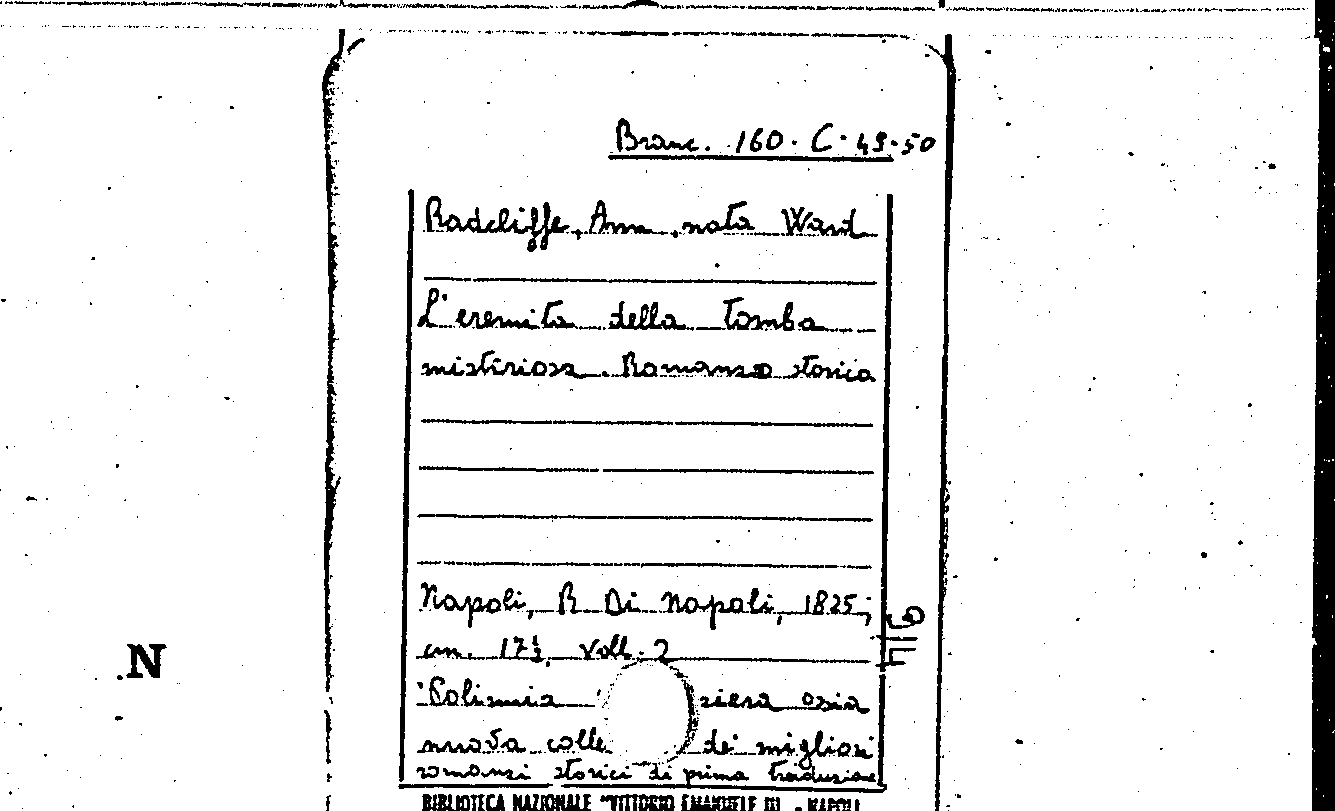 Branc. 160. C. 49-50
Radcliffe, Ann, nata Ward
L'eremita della tomba
misteriosa. Romanzo storico
Napoli, R. Di Napoli, 1825;
cm. 17½, voll. 2
ziera ossia
nuova colle dei migliori
romanzi storici di prima traduzione
BIBLIOTECA NAZIONALE "VITTORIO EMANUELE III" - NAPOLI
N